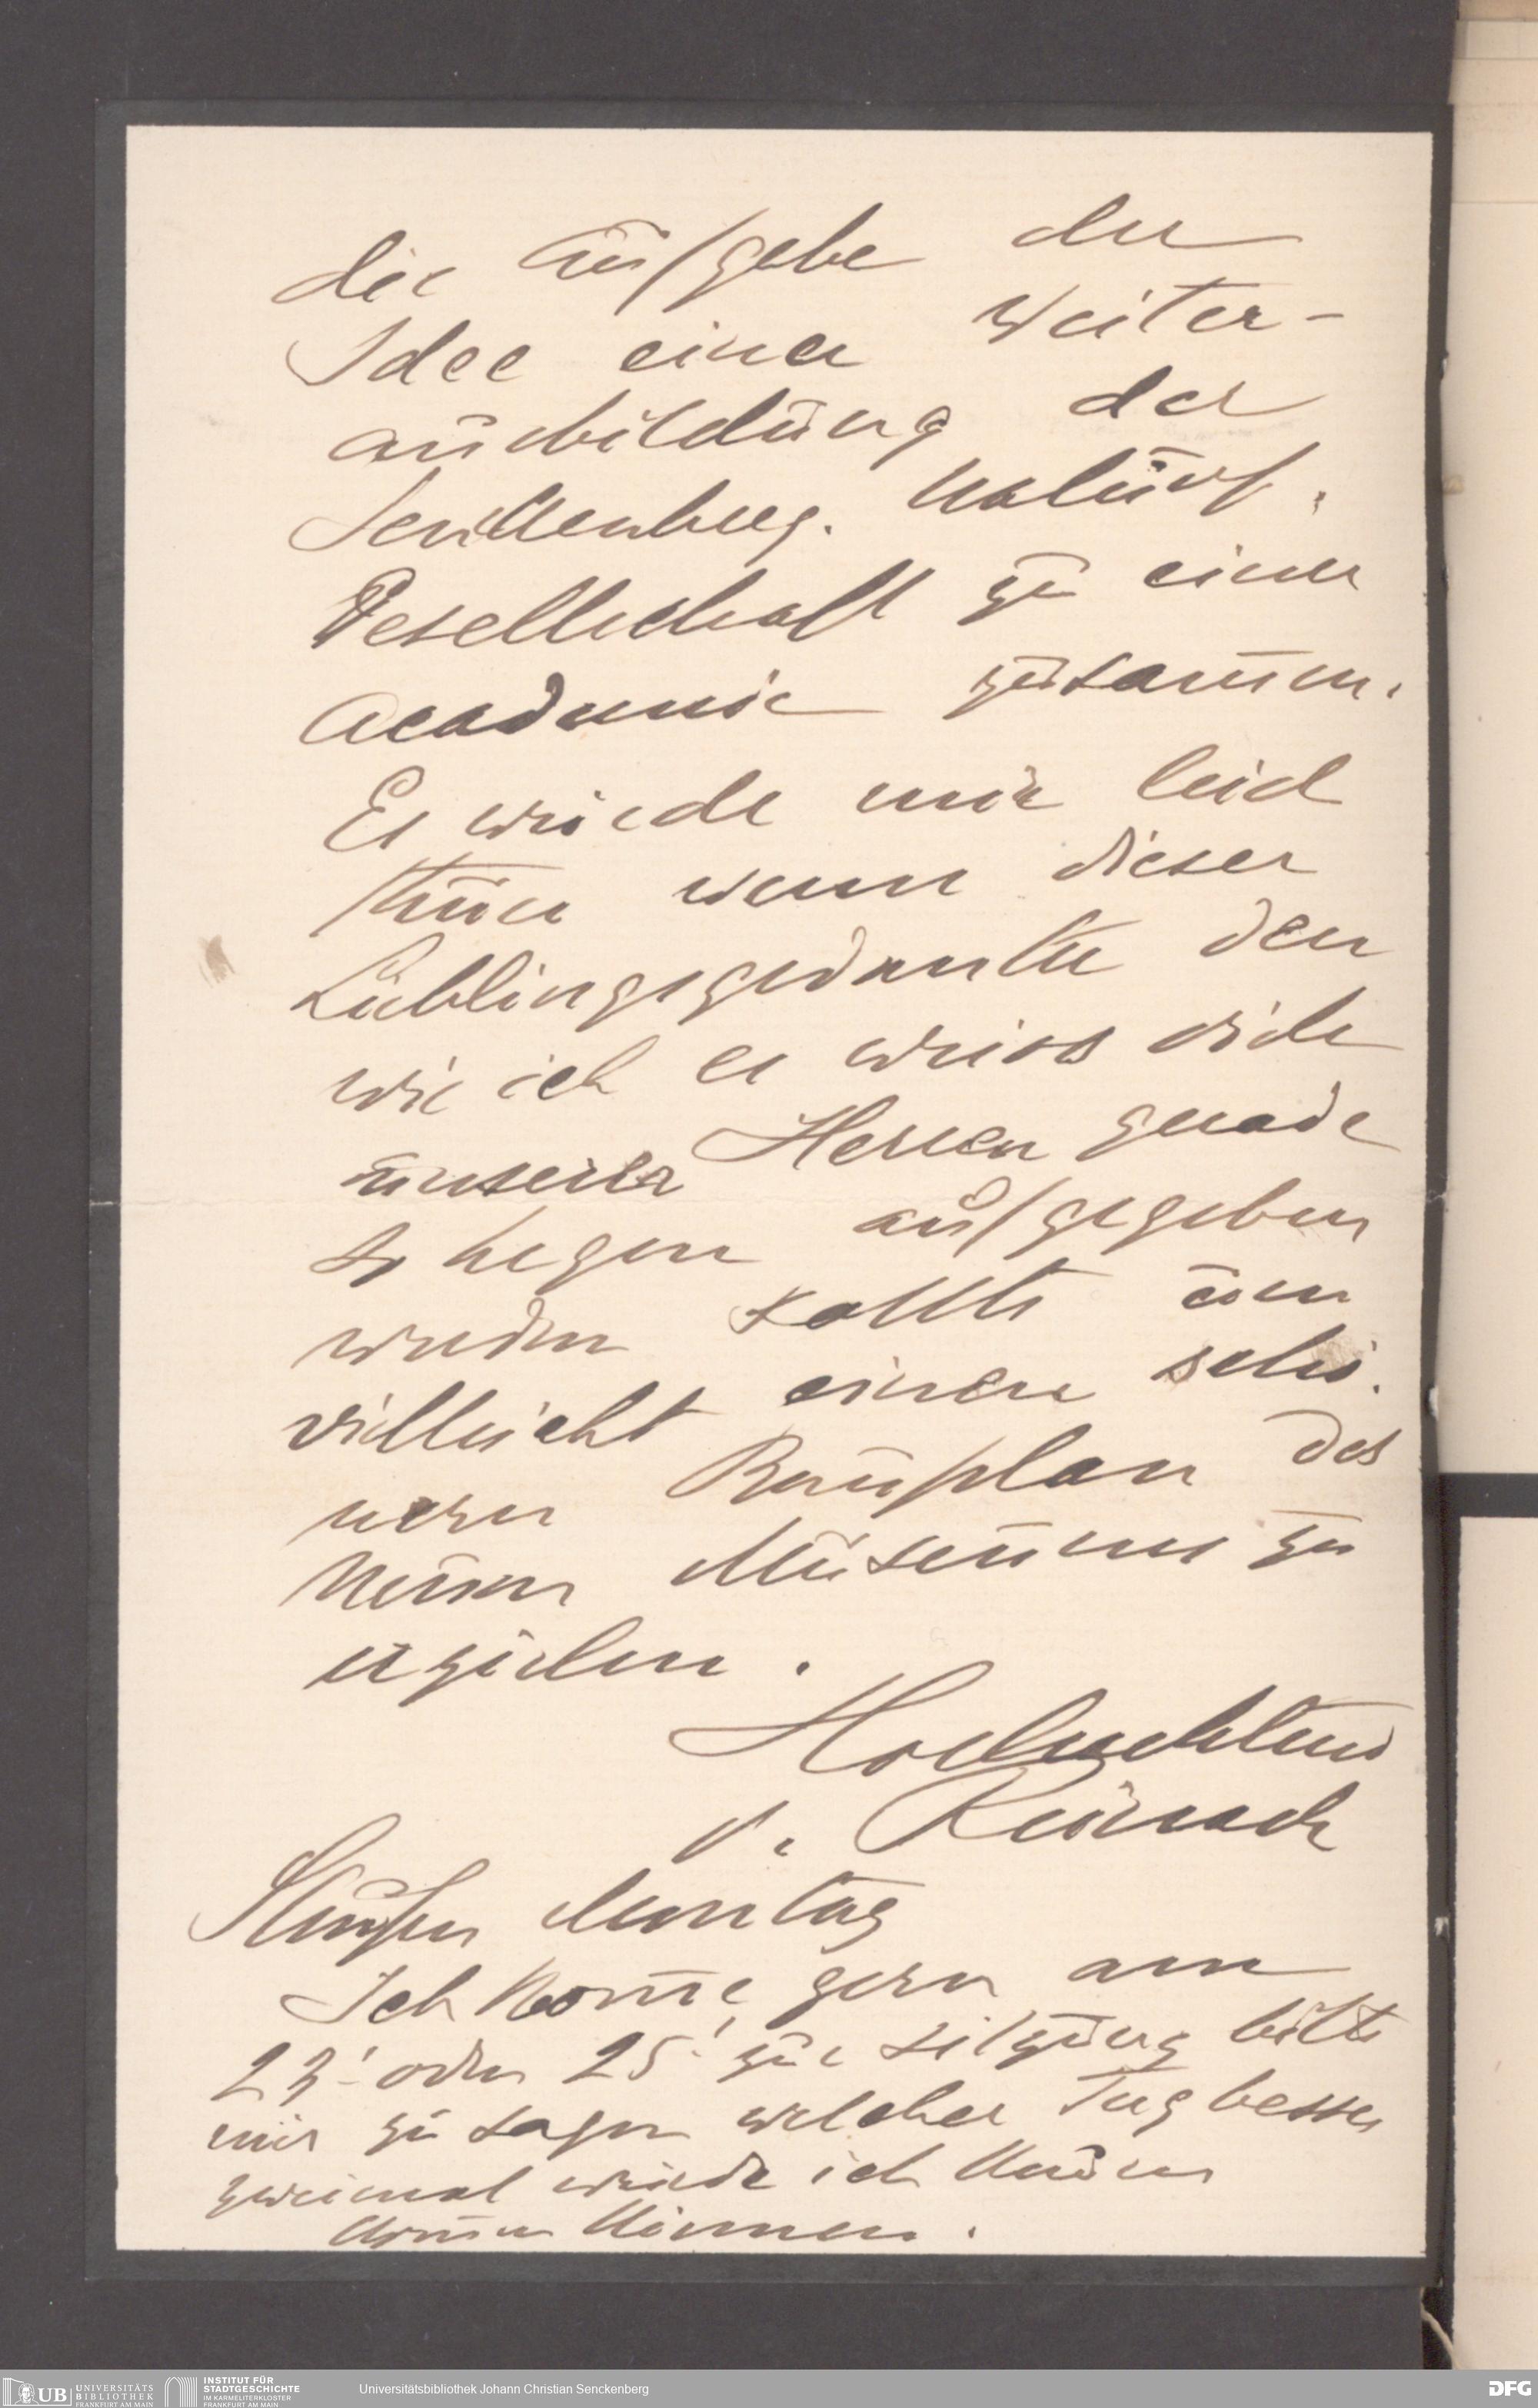 die Aufgabe der
Idee einer Weiter-
ausbildung der
Senckenberg. Naturf.
Gesellschaft zu einer
Academie zusammen.
Es würde mir leid
thun wenn dieser
Lieblingsgedanke den
wie ich es weiss viele
unserer Herren gerade
so hegen aufgegeben
werden sollte um
vielleicht einen schö-
nern Bauplan des
neuen Museums zu
erzielen.
Hochachtend
v. Reinach
Montag
Ich kom̅e gern am
23! oder 25! zur Sitzung bitte
mir zu sagen welcher Tag besser
zweimal würde ich kaum
kom̅en können.
UB UNIVERSITÄTS BIBLIOTHEK FRANKFURT AM MAIN
INSTITUT FÜR STADTGESCHICHTE IM KARMELITERKLOSTER FRANKFURT AM MAIN
Universitätsbibliothek Johann Christian Senckenberg
DFG